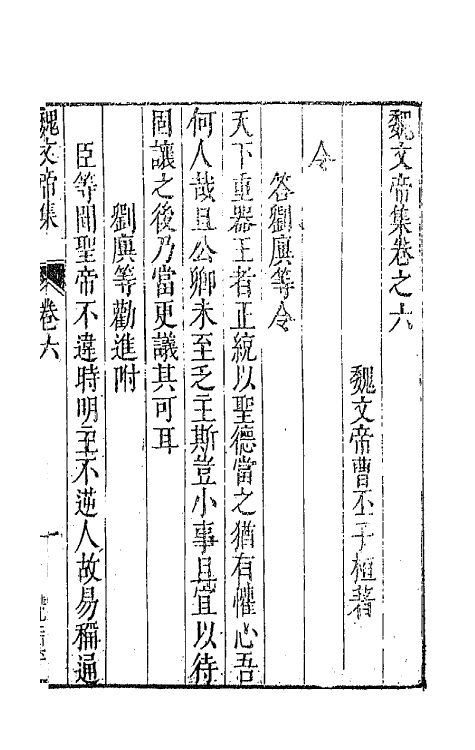 魏文帝集卷之六
魏文帝曹丕子桓著
令
答劉廙等令
天下重器王者正統以聖德當之猶有懼心吾
何人哉且公卿未至乏主斯豈小事且宜以待
固讓之後乃當更議其可耳
劉廙等勸進附
臣等聞聖帝不違時明主不逆人故易稱通
魏文帝集
卷六
一